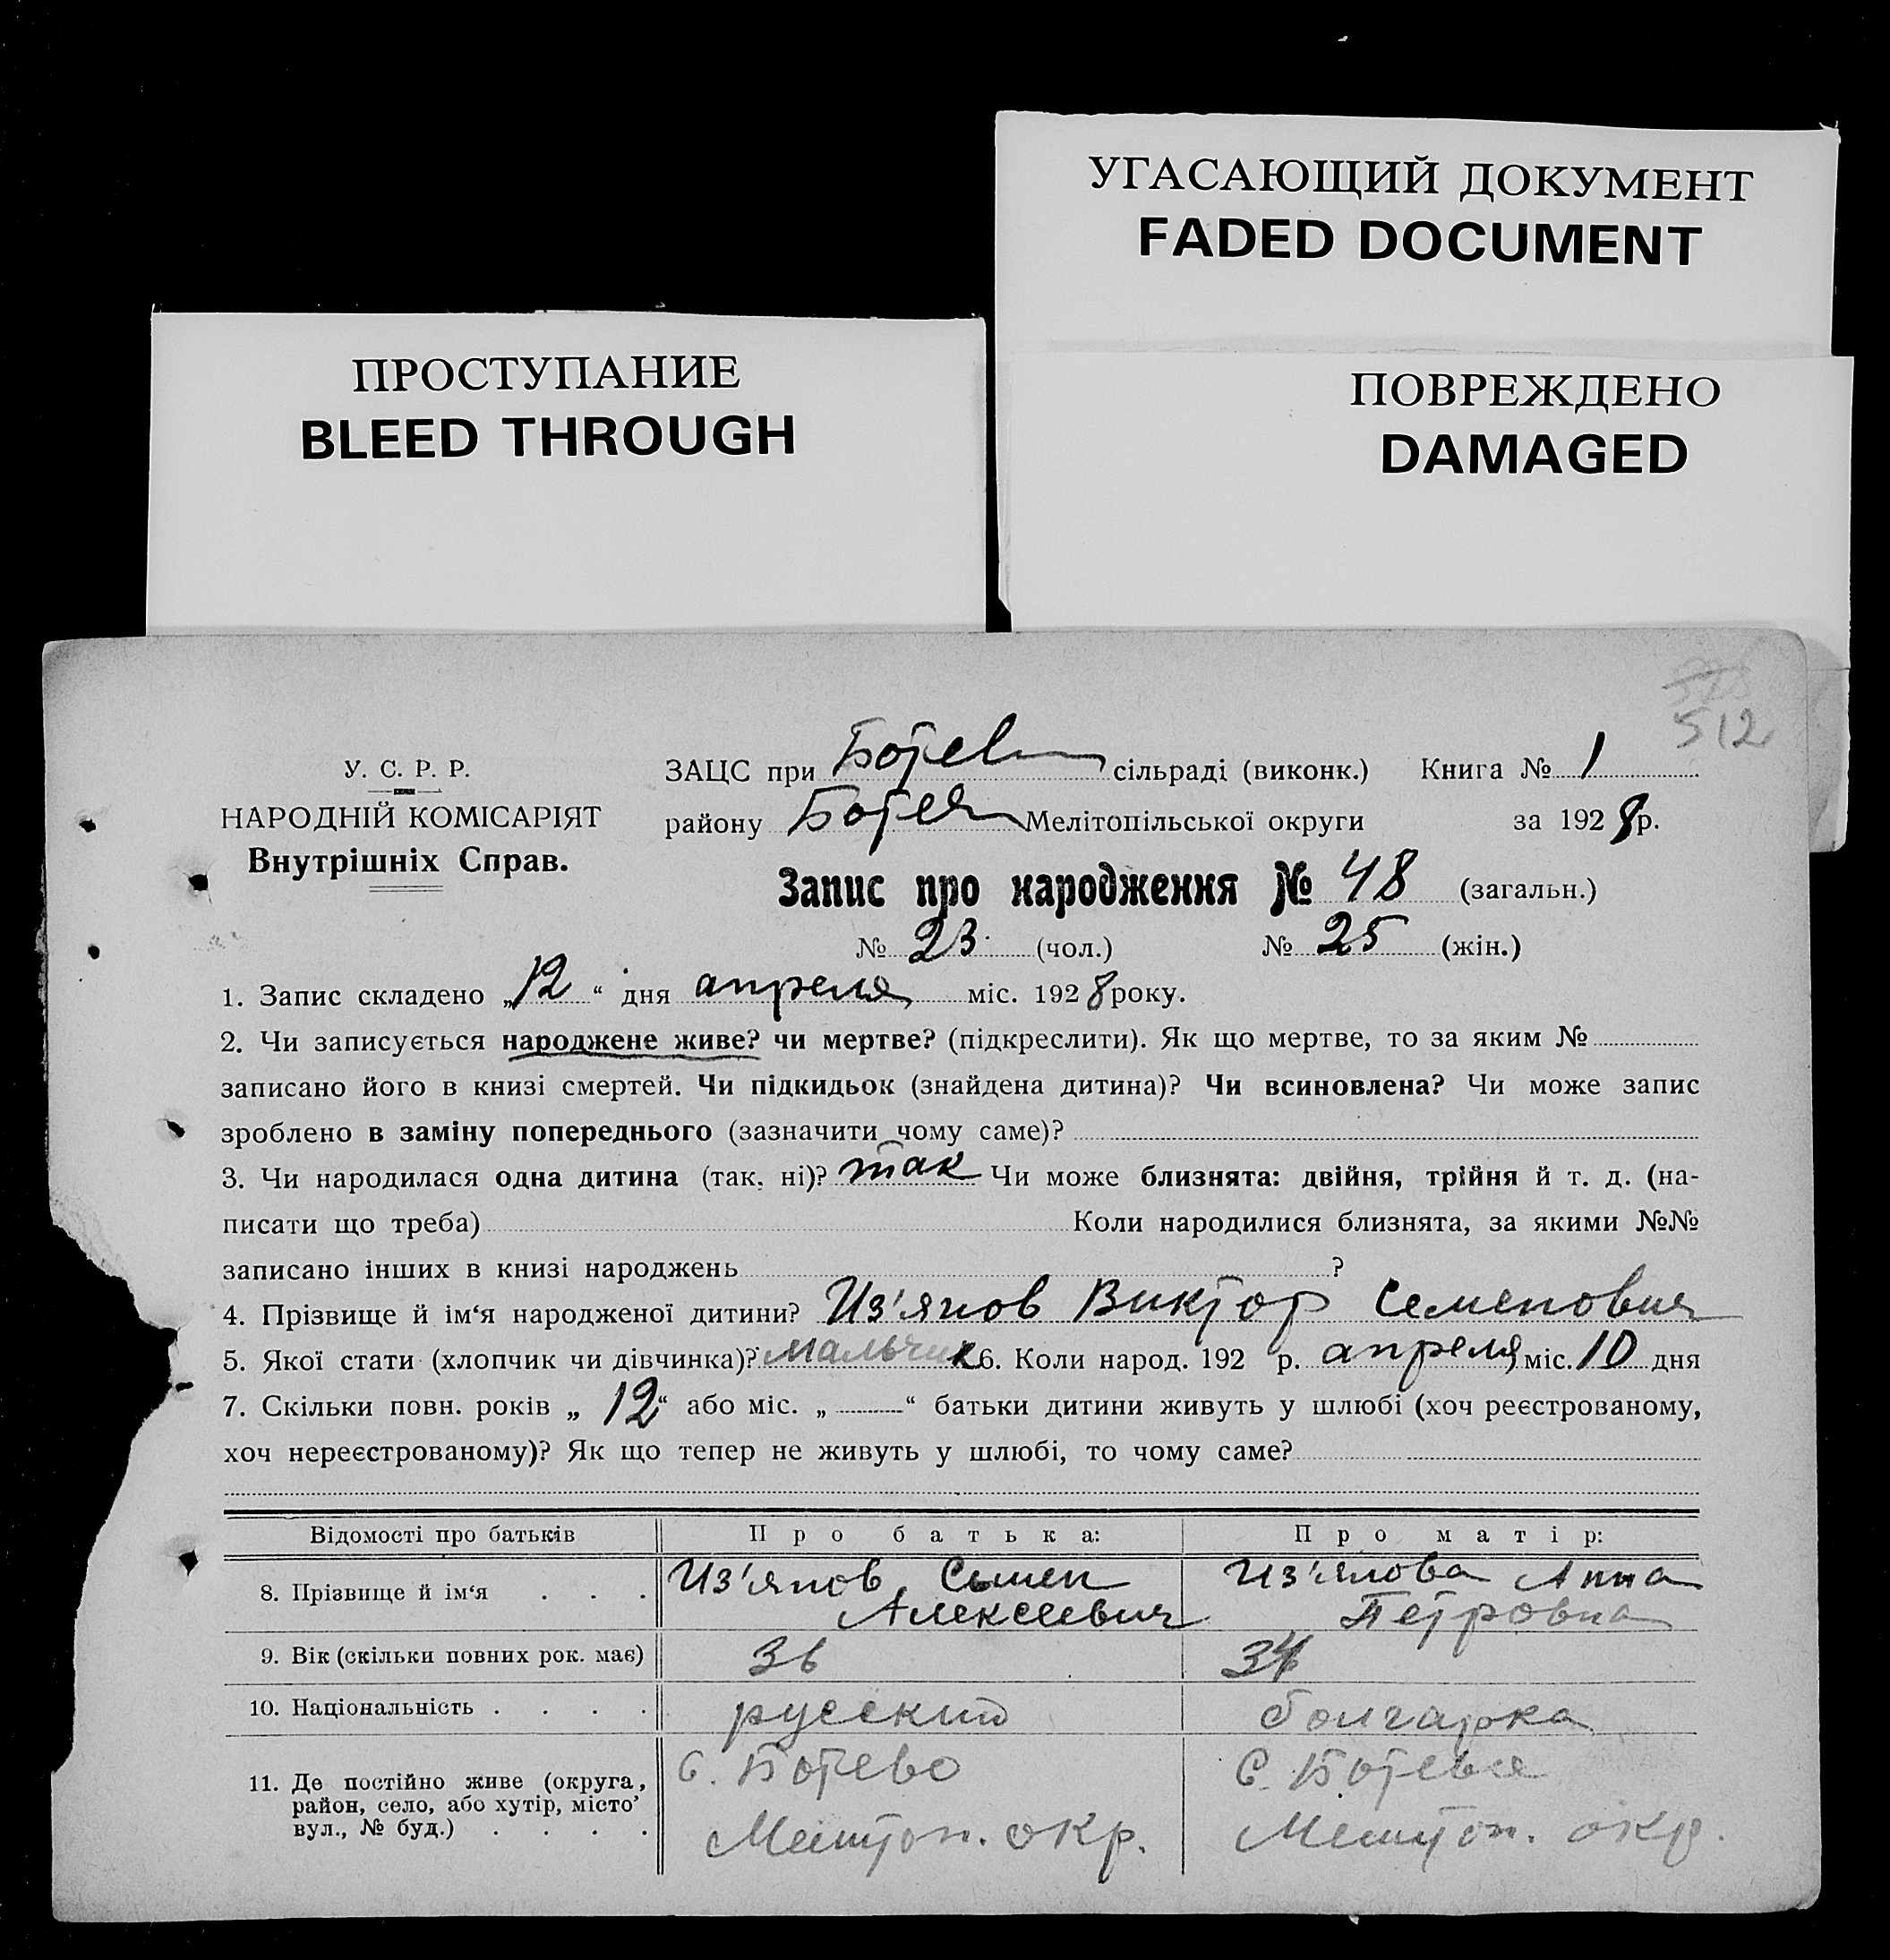 УГАСАЮЩИЙ ДОКУМЕНТ
FADED DOCUMENT
ПРОСТУПАНИЕ
BLEED THROUGH
ПОВРЕЖДЕНО
DAMAGED
512
У. С. Р. Р.
НАРОДНІЙ КОМІСАРІЯТ
Внутрішніх Справ.
ЗАЦС при Ботев сільраді (виконк.) Книга № 1
району Ботев Мелітопільської округи за 1928 р.
Запис про народження № 48 (загальн.)
№ 23 (чол.) № 25 (жін.)
1. Запис складено „12“ дня апреля міс. 1928 року.
2. Чи записується народжене живе? чи мертве? (підкреслити). Як що мертве, то за яким №
записано його в книзі смертей. Чи підкидьок (знайдена дитина)? Чи всиновлена? Чи може запис
зроблено в заміну попереднього (зазначити чому саме)?
3. Чи народилася одна дитина (так, ні)? так Чи може близнята: двійня, трійня й т. д. (на-
писати що треба) Коли народилися близнята, за якими №№
записано інших в книзі народжень ?
4. Прізвище й ім‘я народженої дитини? Из'янов Виктор Семенович
5. Якої стати (хлопчик чи дівчинка)? мальчик 6. Коли народ. 192 р. апреля міс. 10 дня
7. Скільки повн. років „12“ або міс. „ “ батьки дитини живуть у шлюбі (хоч реєстрованому,
хоч нереєстрованому)? Як що тепер не живуть у шлюбі, то чому саме?
Відомості про батьків Про батька: Про матір:
8. Прізвище й ім‘я . . . Из'янов Семен Алексеевич Из'янова Анна Петровна
9. Вік (скільки повних рок. має) 36
10. Національність . . . . русский болгарка
11. Де постійно живе (округа, с. Ботево с. Ботево
район, село, або хутір, місто’
вул., № буд.) . . . . Мелитоп. окр. Мелитоп. окр.